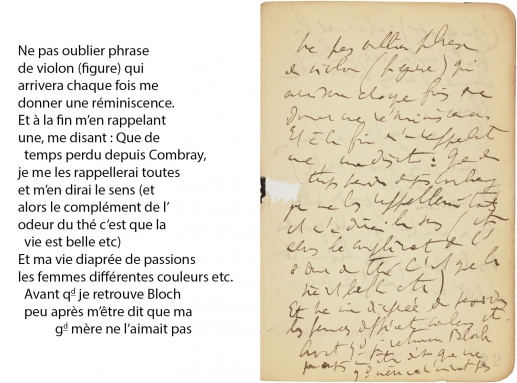 Ne pas oublier phrase
de violon (figure) qui
arrivera chaque fois me
donner une réminiscence.
Et à la fin m’en rappelant
une, me disant : Que de
temps perdu depuis Combray,
je me les rappellerai toutes
et m’en dirai le sens (et
alors le complément de l’
odeur du thé c’est que la
vie est belle etc)
Et ma vie diaprée de passions
les femmes différentes couleurs etc.
Avant qd je retrouve Bloch
peu après m’être dit que ma
gd mère ne l’aimait pas
Ne pas oublier phrase
de violon (figure) qui
arrivera chaque fois me
donner une réminiscence.
Et à la fin m’en rappelant
une, me disant : Que de
temps perdu depuis Combray
je me les rappellerai toutes
et m’en dirai le sens (et
alors le complément de l’
odeur du thé c’est que la
vie est belle etc)
Et ma vie diaprée de passions
les femmes différentes couleurs etc.
Avant qd je retrouve Bloch
peu après m’être dit que ma
gd mère ne l’aimait pas